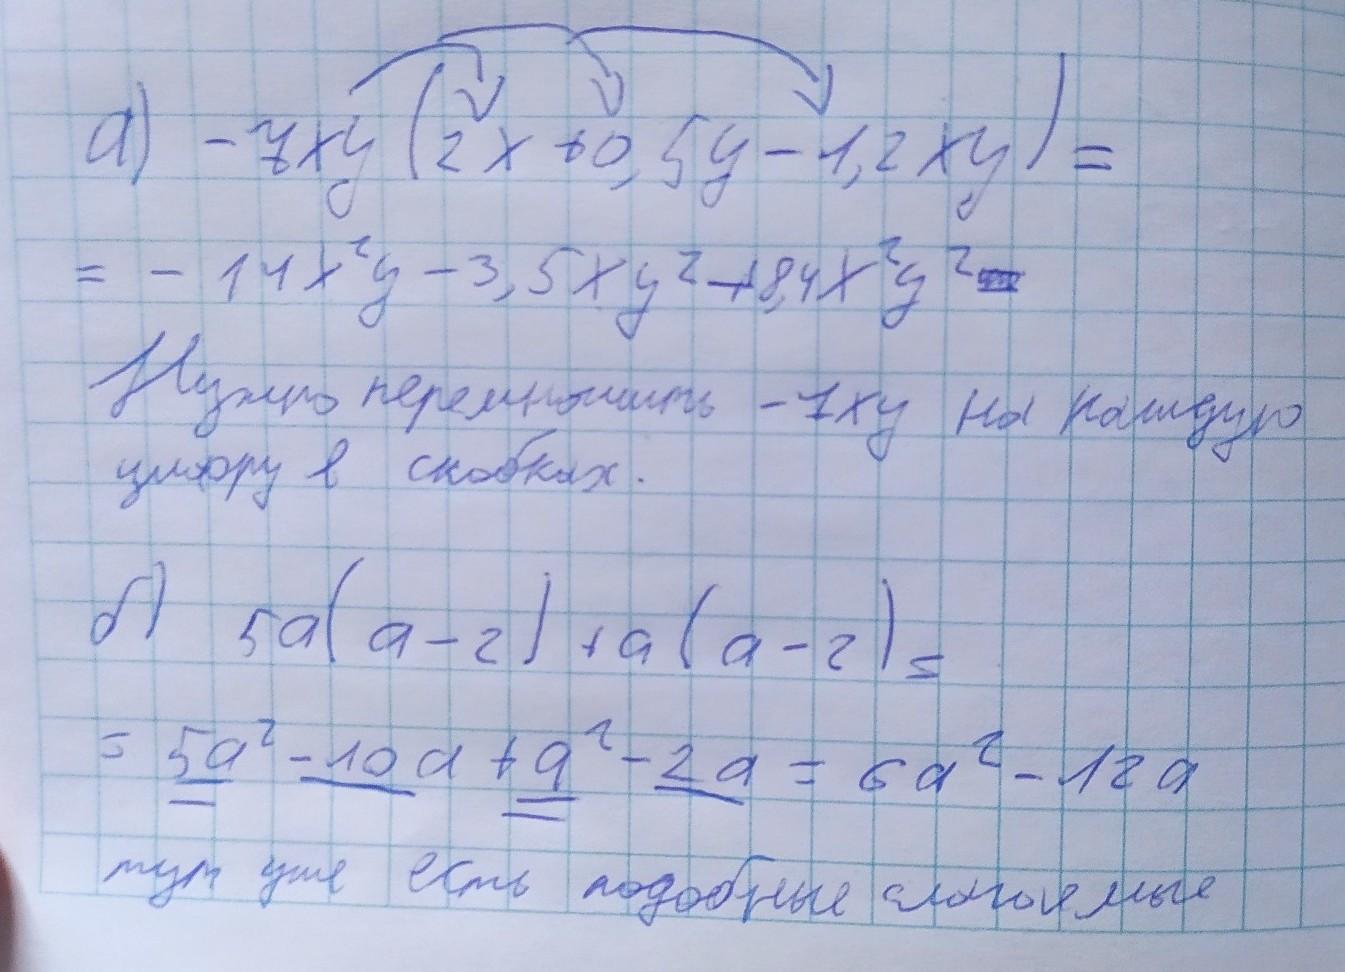 а) -7xy(2x+0,5y-1,2xy)=
= -14x²y-3,5xy²+8,4x²y²
Нужно перемножить -7xy на каждую
цифру в скобках.
б) 5a(a-2)+a(a-2)=
= 5a²-10a+a²-2a=6a²-12a
тут уже есть подобные слагаемые